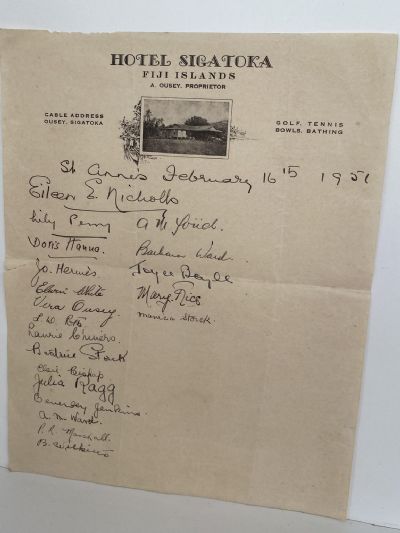 HOTEL SIGATOKA
FIJI ISLANDS
A. OUSEY, PROPRIETOR
CABLE ADDRESS
OUSEY, SIGATOKA
GOLF, TENNIS
BOWLS, BATHING
St Anne's February 16 15 1951
Eileen E. Nicholls
Lily Penny
Doris Hanna
Jo. Hermes
Elsie White
Vera Ousey
Laurie
Beatrice Stock
Julia Ragg
Jenkins.
A. M. Ward.
P. R. Marshall
B. Wilkins
A M
Barbara Ward.
Joyce Boyle
Mary Rice
Monica Storck.